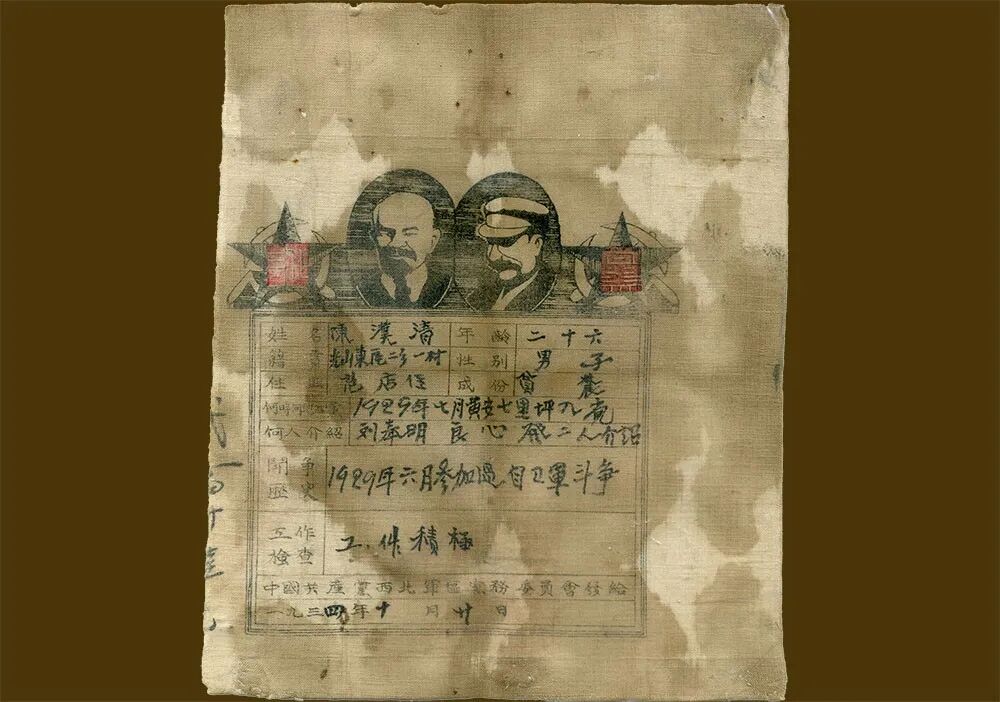 姓名 陳漢清 年齡 二十六
籍貫 東區二乡一村 性别 男子
住 店住 成份 貧農
何時何地 1929年七月黄安七里坪入党
何人介紹 刘奉明 良心 二人介紹
鬭争歷史 1929年六月参加過自卫軍斗争
工作檢查 工作積極
中國共產黨西北軍區黨務委員會發給
一九三四年十月廿日